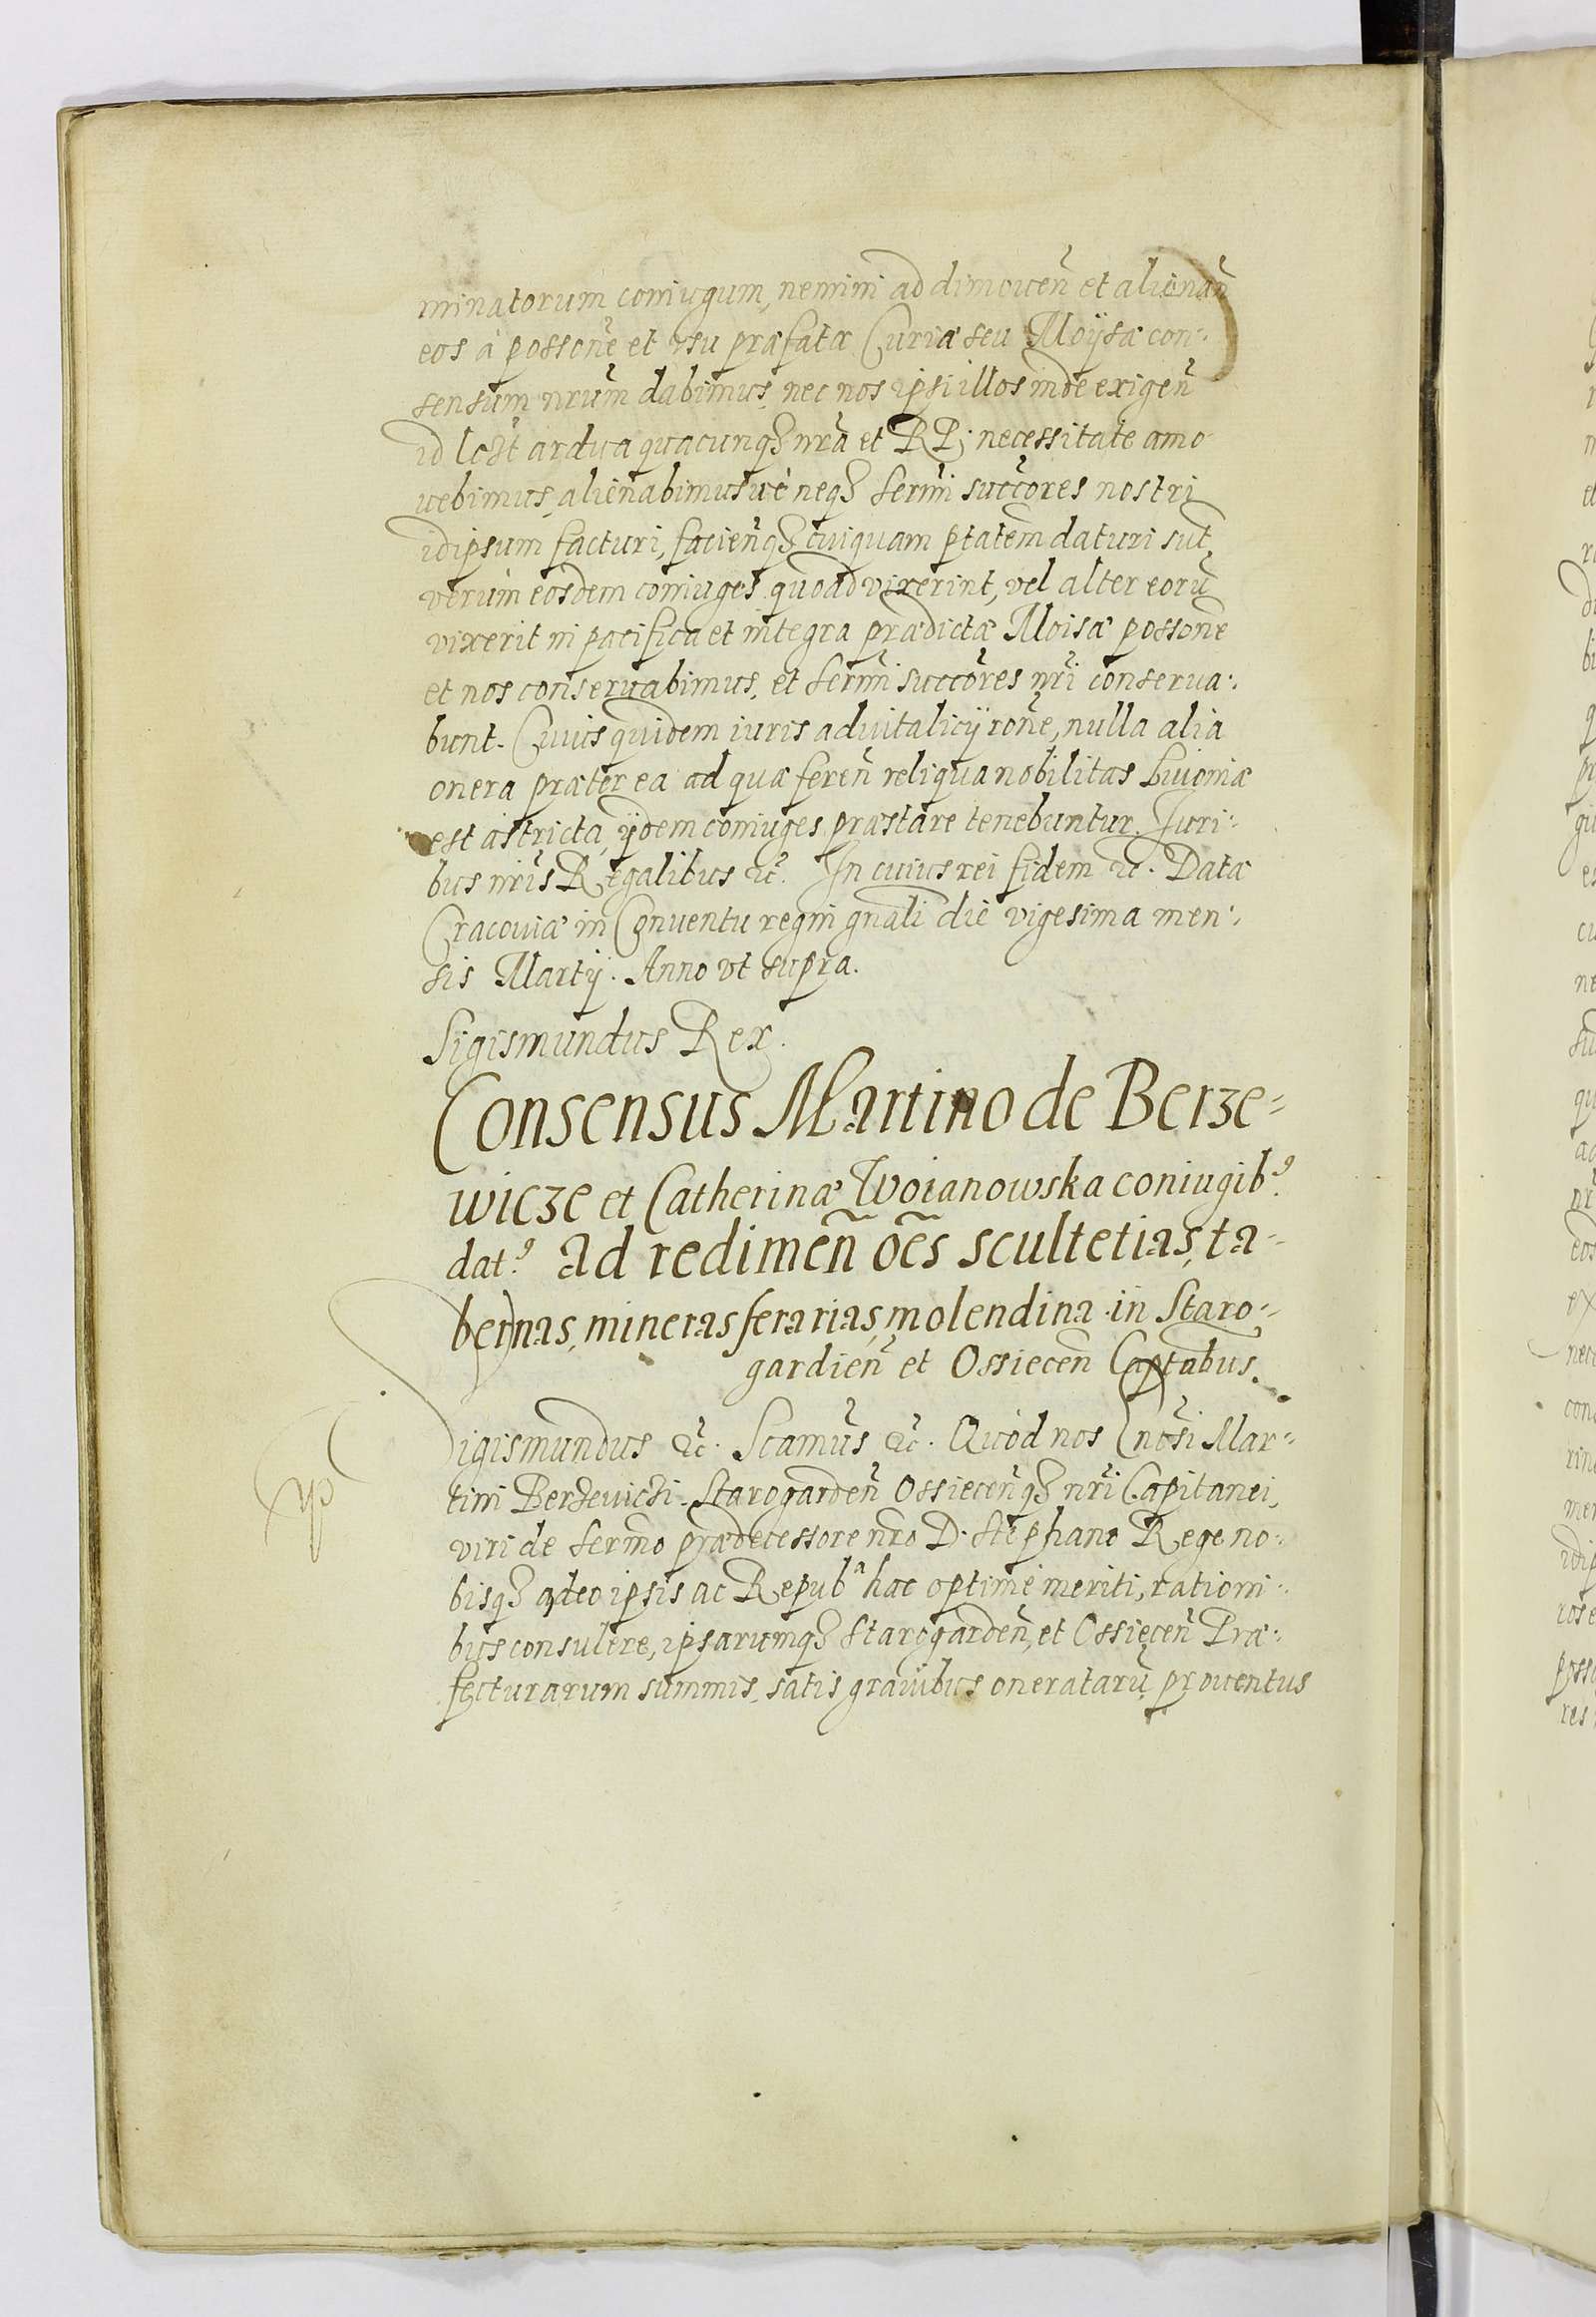 minatorum coniugum, nemini ad dimouen̄ et alienan̄
eos à possone̅ et vsu præfatæ Curiæ seu Moÿsæ con:
sensum nrum̅ dabimus, nec nos ipsi illos inde exigen̄
id ardua quacunqꝫ nra̅ et RP: necessitate amo
uebimus, alienabimusuè neqꝫ sermi̅ succores̅ nostri
idipsum facturi, facien̄qꝫ cuiquam ptatem̅ daturi sut̅,
verùm eosdem coniuges quoad vixerint, vel alter eorū
vixerit in pacifica et integra prædictæ Moisæ possone̅
et nos conseruabimus, et sermi̅ succores̅ nri̅ conserua:
bunt. Cuius quidem iuris aduitalicÿ rone̅, nulla alia
onera præter ea ad quæ feren̄ reliqua nobilitas Liuoniæ
est astricta, ÿdem coniuges præstare tenebuntur. Juri:
bus nris̅ Regalibus &c̅. In cuius rei fidem &c. Datæ
Cracouiæ in Conuentu regni gnali̅ die vigesima men:
sis Martÿ. Anno vt supra.
Sigismundus Rex.
Consensus Martino de Berze=
wicze et Catherinæ Woianowska coniugibꝰ.
datꝰ. ad redimen̄ oēs scultetias, ta=
bernas, mineras ferarias, molendina in Staro=
gardien̄ et Ossiecen̄ Captabus.
Sigismundus &c̅. Scamus̅ &c̅. Quòd nos Gnosi̅ Mar=
tini Berzeuiczi Starogarden̄ Ossiecen̄qꝫ nri̅ Capitanei,
viri de sermo̅ prædecessore nro̅ D. Stephano Rege no:
bisqꝫ adeo ipsis ac Repubᵃ hac optimè meriti, rationi:
bus consulere, ipsarumqꝫ Starogarden̄, et Ossiecen̄ Præ:
fecturarum summis, satis grauibus oneratarū prouentus